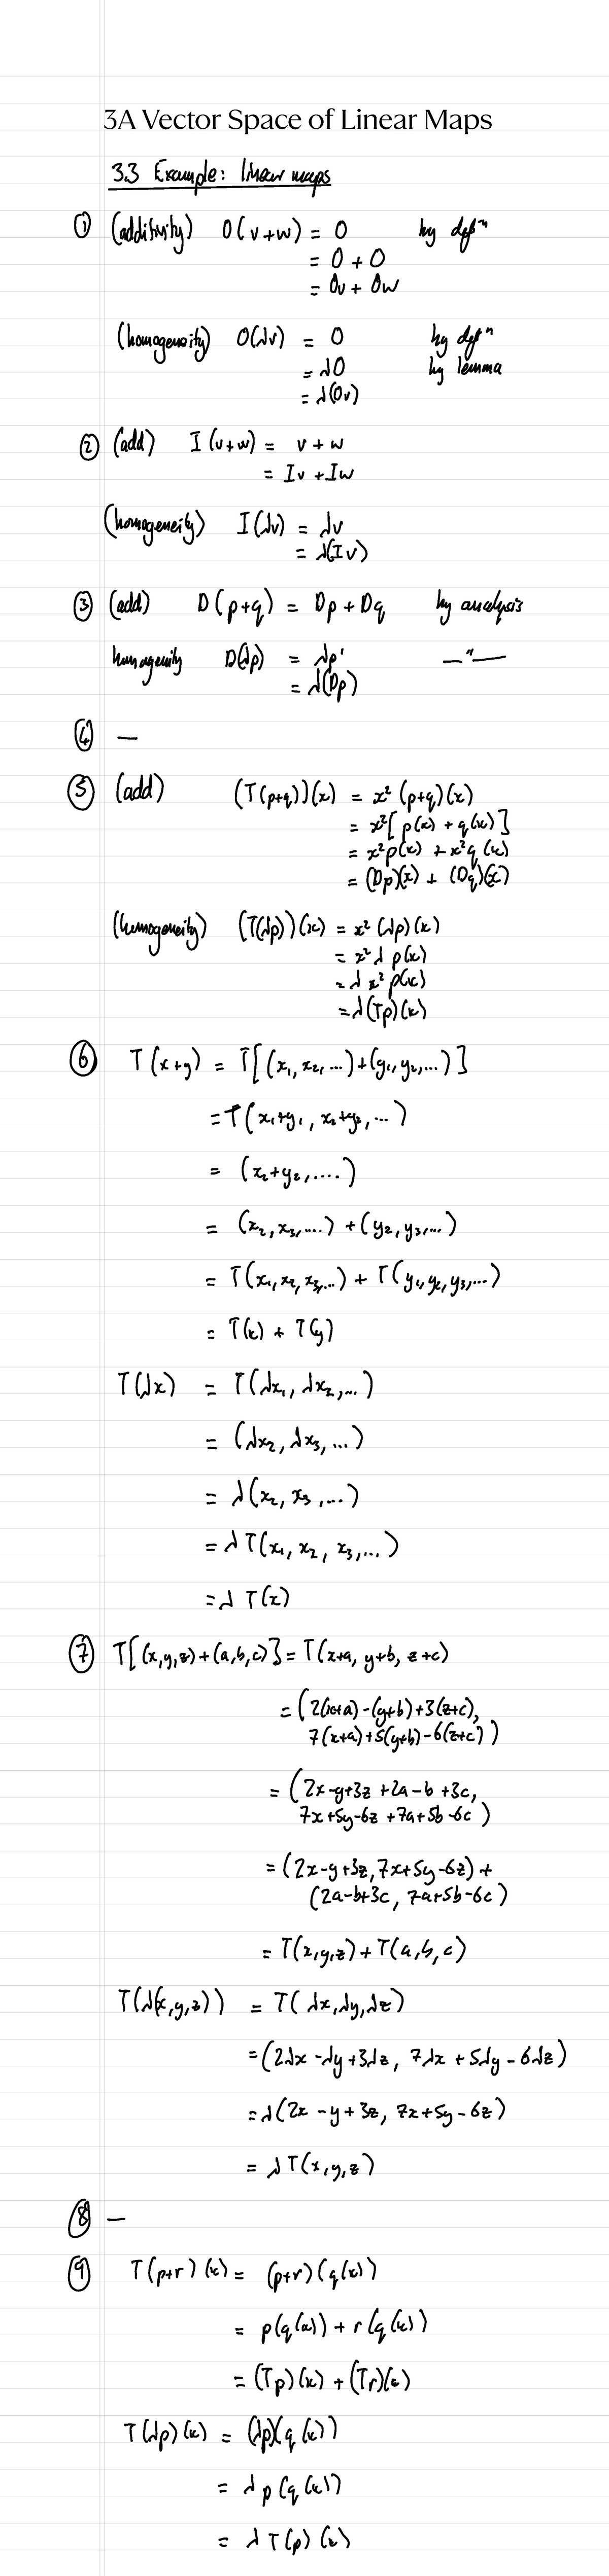 3A Vector Space of Linear Maps
3.3 Example: linear maps
① (additivity) 0(v+w) = 0 by defⁿ
= 0 + 0
= 0v + 0w
(homogeneity) 0(λv) = 0 by defⁿ
= λ0 by lemma
= λ(0v)
② (add) I(v+w) = v + w
= Iv + Iw
(homogeneity) I(λv) = λv
= λ(Iv)
③ (add) D(p+q) = Dp + Dq by analysis
homogeneity D(λp) = λp' —"—
= λ(Dp)
④ —
⑤ (add) (T(p+q))(x) = x²(p+q)(x)
= x²[p(x) + q(x)]
= x²p(x) + x²q(x)
= (Dp)(x) + (Dq)(x)
(homogeneity) (T(λp))(x) = x²(λp)(x)
= x²λ p(x)
= λ x² p(x)
= λ(Tp)(x)
⑥ T(x+y) = T[(x₁, x₂, ...)+(y₁, y₂, ...)]
= T(x₁+y₁, x₂+y₂, ...)
= (x₂+y₂, ....)
= (x₂, x₃, ...) + (y₂, y₃, ...)
= T(x₁, x₂, x₃, ...) + T(y₁, y₂, y₃, ...)
= T(x) + T(y)
T(λx) = T(λx₁, λx₂, ...)
= (λx₂, λx₃, ...)
= λ(x₂, x₃, ...)
= λ T(x₁, x₂, x₃, ...)
= λ T(x)
⑦ T[(x,y,z)+(a,b,c)] = T(x+a, y+b, z+c)
= (2(x+a)-(y+b)+3(z+c),
7(x+a)+5(y+b)-6(z+c))
= (2x-y+3z+2a-b+3c,
7x+5y-6z+7a+5b-6c)
= (2x-y+3z, 7x+5y-6z) +
(2a-b+3c, 7a+5b-6c)
= T(x,y,z) + T(a,b,c)
T(λ(x,y,z)) = T(λx, λy, λz)
= (2λx - λy + 3λz, 7λx + 5λy - 6λz)
= λ(2x - y + 3z, 7x + 5y - 6z)
= λ T(x,y,z)
⑧ —
⑨ T(p+r)(x) = (p+r)(q(x))
= p(q(x)) + r(q(x))
= (Tp)(x) + (Tr)(x)
T(λp)(x) = (λp)(q(x))
= λ p(q(x))
= λ T(p)(x)